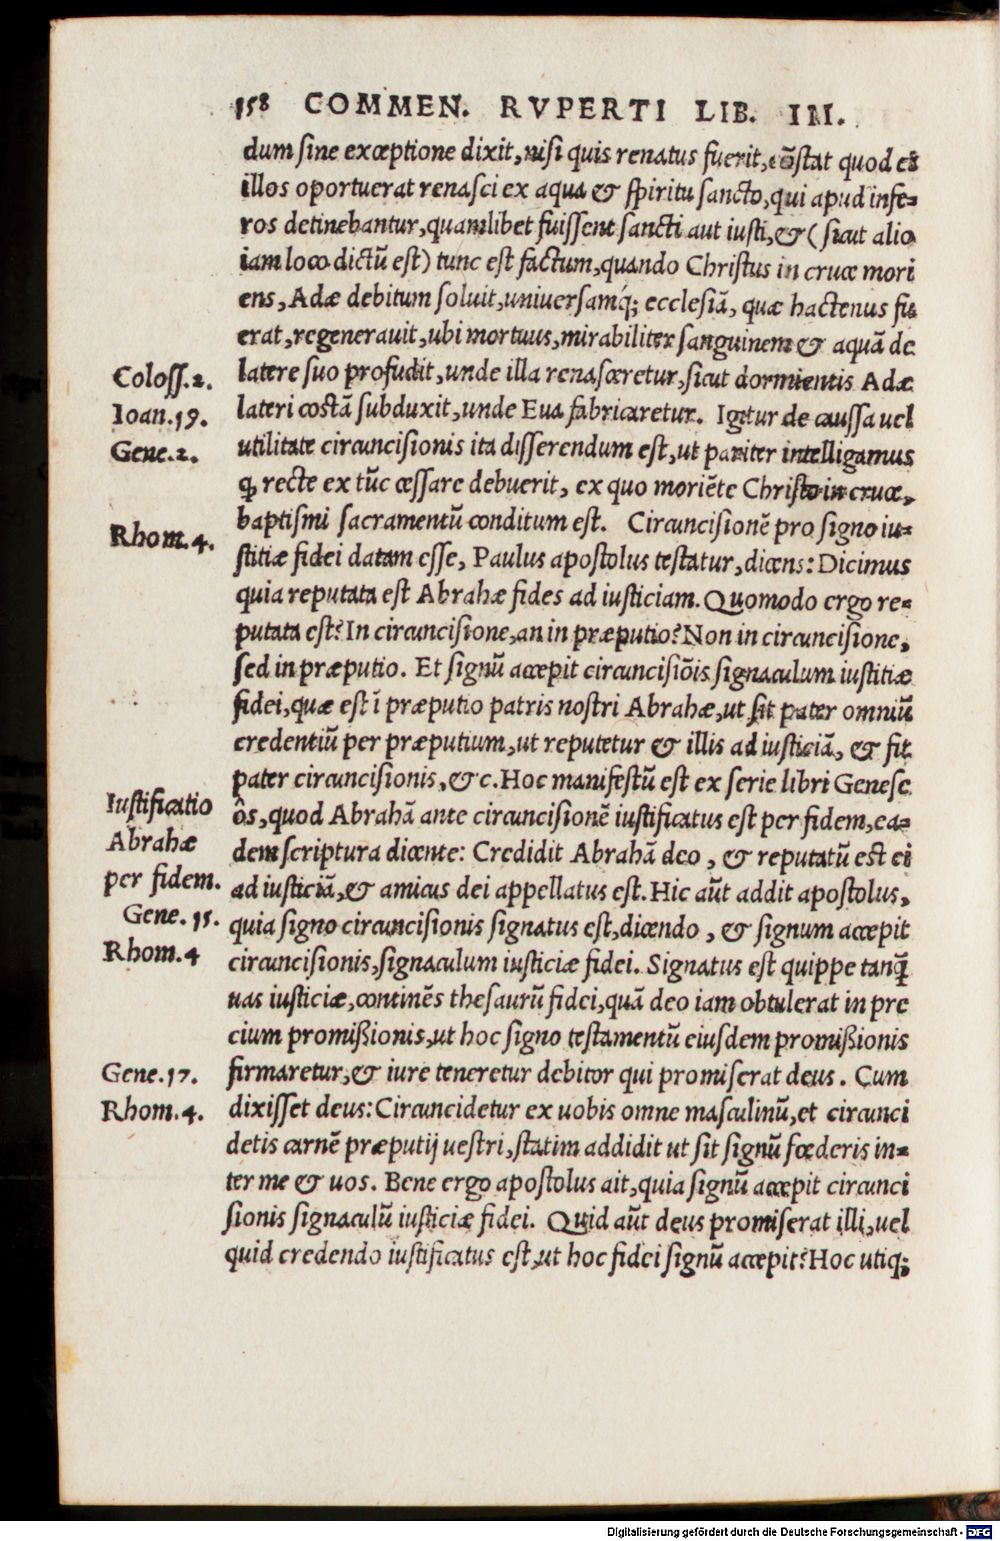 158 COMMEN. RVPERTI LIB. III.
dum ſine exceptione dixit, niſi quis renatus fuerit, cōſtat quod et
illos oportuerat renaſci ex aqua & ſpiritu ſancto, qui apud infe-
ros detinebantur, quamlibet fuiſſent ſancti aut iuſti, & ( ſicut alio
iam loco dictū eſt) tunc eſt factum, quando Chriſtus in cruce mori
ens, Adæ debitum ſoluit, uniuerſamq́; eccleſiā, quæ hactenus fu
erat, regenerauit, ubi mortuus, mirabiliter ſanguinem & aquā de
Coloſſ.2.
latere ſuo profudit, unde illa renaſceretur, ſicut dormientis Adæ
Ioan.19.
lateri coſtā ſubduxit, unde Eua fabricaretur. Igitur de cauſſa uel
Gene.2.
utilitate circunciſionis ita diſſerendum eſt, ut pariter intelligamus
ꝙ recte ex tūc ceſſare debuerit, ex quo moriēte Chriſto in cruce,
baptiſmi ſacramentū conditum eſt. Circunciſionē pro ſigno iu-
Rhom.4.
ſtitiæ fidei datam eſſe, Paulus apoſtolus teſtatur, dicens: Dicimus
quia reputata eſt Abrahæ fides ad iuſticiam. Quomodo ergo re-
putata eſt? In circunciſione, an in præputio? Non in circunciſione,
ſed in præputio. Et ſignū accepit circunciſiōis ſignaculum iuſtitiæ
fidei, quæ eſt ī præputio patris noſtri Abrahæ, ut ſit pater omniū
credentiū per præputium, ut reputetur & illis ad iuſticiā, & ſit
pater circunciſionis, & c. Hoc manifeſtū eſt ex ſerie libri Geneſe
Iuſtificatio
ôs, quod Abrahā ante circunciſionē iuſtificatus eſt per fidem, ea-
Abrahæ
dem ſcriptura dicente: Credidit Abrahā deo, & reputatū eſt ei
per fidem.
ad iuſticiā, & amicus dei appellatus eſt. Hic aūt addit apoſtolus,
Gene. 15.
quia ſigno circunciſionis ſignatus eſt, dicendo, & ſignum accepit
Rhom.4
circunciſionis, ſignaculum iuſticiæ fidei. Signatus eſt quippe tanq̄
uas iuſticiæ, continēs theſaurū fidei, quā deo iam obtulerat in pre
cium promißionis, ut hoc ſigno teſtamentū eiuſdem promißionis
Gene.17.
firmaretur, & iure teneretur debitor qui promiſerat deus. Cum
Rhom.4.
dixiſſet deus: Circuncidetur ex uobis omne maſculinū, et circunci
detis carnē præputij ueſtri, ſtatim addidit ut ſit ſignū fœderis in-
ter me & uos. Bene ergo apoſtolus ait, quia ſignū accepit circunci
ſionis ſignaculū iuſticiæ fidei. Quid aūt deus promiſerat illi, uel
quid credendo iuſtificatus eſt, ut hoc fidei ſignū accepit? Hoc utiq;
Digitalisierung gefördert durch die Deutsche Forschungsgemeinschaft - DFG